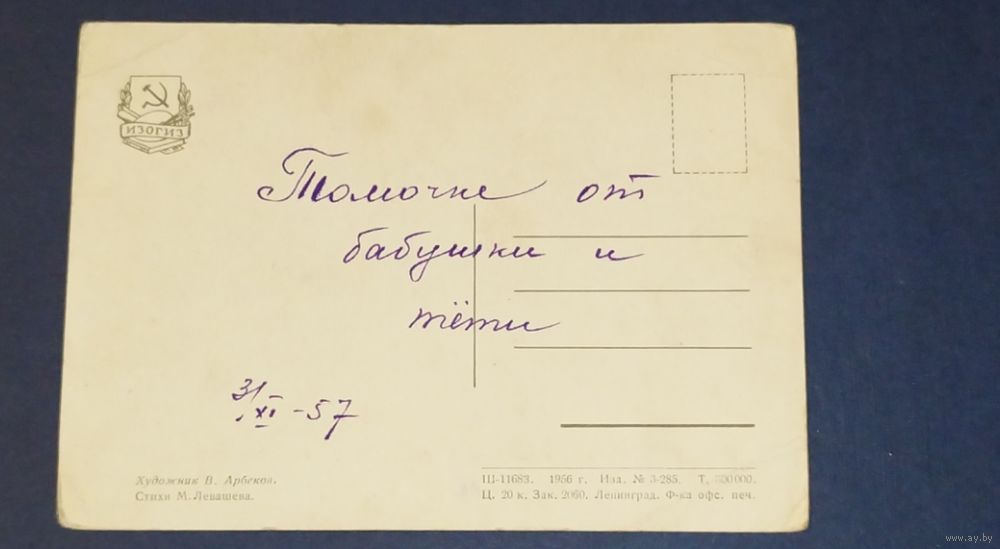 ИЗОГИЗ
Томочке от
бабушки и
тёти
31/XI -57
Художник В. Арбеков.
Стихи М. Левашева.
Ш-11683. 1956 г. Изд. № 3-285. Т. 500000.
Ц. 20 к. Зак. 2060. Ленинград. Ф-ка офс. печ.
www.ay.by